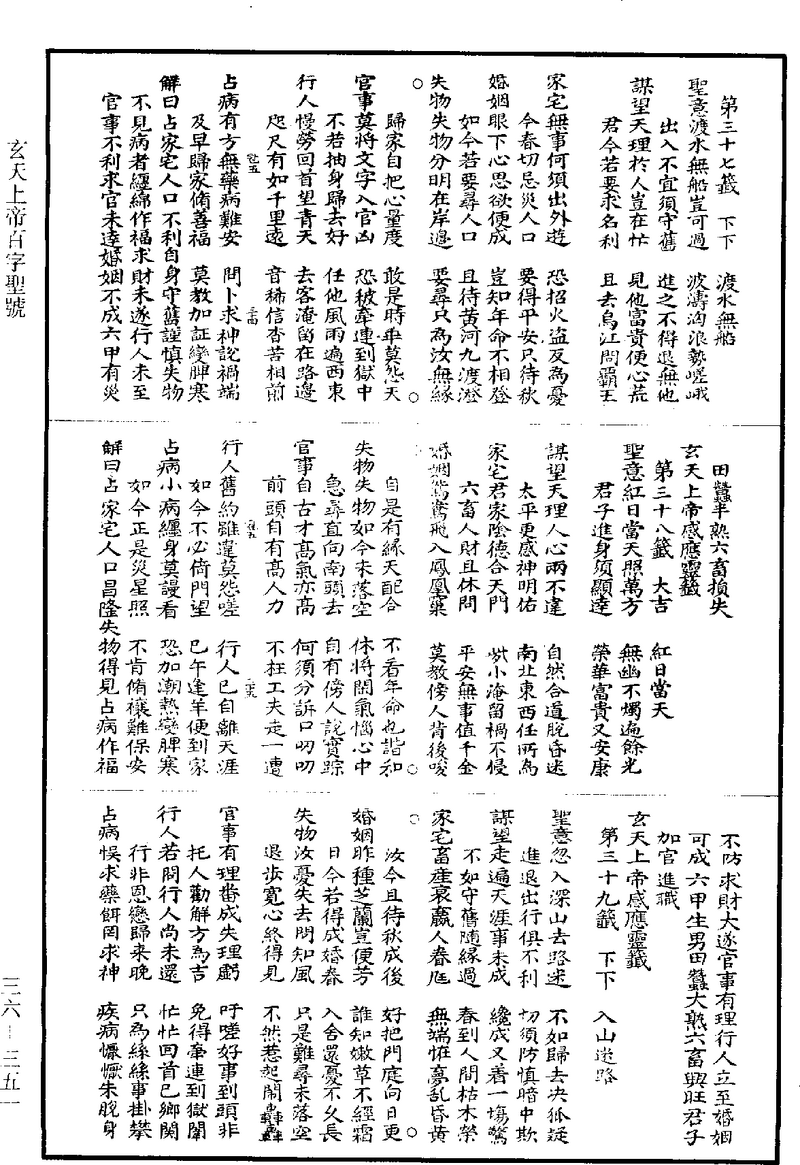 玄天上帝百字聖號
三六-三五一
第三十七籤　下下　渡水無船
聖意渡水無船豈可過　波濤洶浪勢嵯峨
出入不宜須守舊　進之不得退無他
謀望天理於人豈在忙　見他富貴便心荒
君今若要求名利　且去烏江問霸王
家宅無事何須出外遊　恐招火盜反為憂
今春切忌災人口　要得平安只待秋
婚姻眼下心思欲便成　豈知年命不相登
如今若要尋人口　且待黃河九渡澄
失物失物分明在岸邊　要尋只為汝無緣
○歸家自把心量度　敢是時乖莫怨天○
官事莫將文字入官凶　恐被牽連到獄中
不若抽身歸去好　任他風雨遍西東
行人慢勞回首望青天　去客淹留在路邊
咫尺有如千里遠　音稀信杳若相前
占病有方無藥病難安　問卜求神說禍端
及早歸家脩善福　莫教加証變脾寒
解曰占家宅人口不利自身守舊謹慎失物
不見病者纏綿作福求財未遂行人未至
官事不利求官未達婚姻不成六甲有災
田蠶半熟六畜損失
玄天上帝感應靈籤
第三十八籤　大吉　紅日當天
聖意紅日當天照萬方　無幽不燭遍餘光
君子進身須顯達　榮華富貴又安康
謀望天理人心兩不違　自然合道脫昏迷
太平更感神明佑　南北東西任所為
家宅君家陰德合天門　小淹留禍不侵
六畜人財且休問　平安無事值千金
婚姻鴛鴦飛入鳳凰窠　莫教傍人背後唆
自是有緣天配合　不看年命也諧和○
失物失物如今未落空　休將閑氣惱心中
急尋直向南頭去　自有傍人說實踪
官事自古才高氣亦高　何須分訴口叨叨
前頭自有高人力　不枉工夫走一遭
行人舊約雖違莫怨嗟　行人已自離天涯
如今不必倚門望　巳午逢羊便到家
占病小病纏身莫謾看　恐加潮熱變脾寒
如今正是災星照　不肯脩禳難保安
解曰占家宅人口昌隆失物得見占病作福
不防求財大遂官事有理行人立至婚姻
可成六甲生男田蠶大熟六畜興旺君子
加官進職
玄天上帝感應靈籤
第三十九籤　下下　入山迷路
聖意忽入深山去路迷　不如歸去決狐疑
進退出行俱不利　切須防慎暗中欺
謀望走遍天涯事未成　纔成又着一場驚
不如守舊隨緣過　春到人間枯木榮
家宅畜產衰羸人眷尫　無端怪夢亂昏黃
○汝今且待秋成後　好把門庭向日更○
婚姻昨種芝蘭豈便芳　誰知嫩草不經霜
日今若得成婚眷　入舍還憂不久長
失物汝憂失去問知風　只是難尋未落空
退步寬心終得見　不然惹起鬧轟轟
官事有理番成失理虧　吁嗟好事到頭非
托人勸解方為吉　免得牽連到獄闈
行人若問行人尚未還　忙忙回首已鄉關
行非恩戀歸來晚　只為絲絲事掛攀
占病悞求藥餌罔求神　疾病懨懨朱脫身